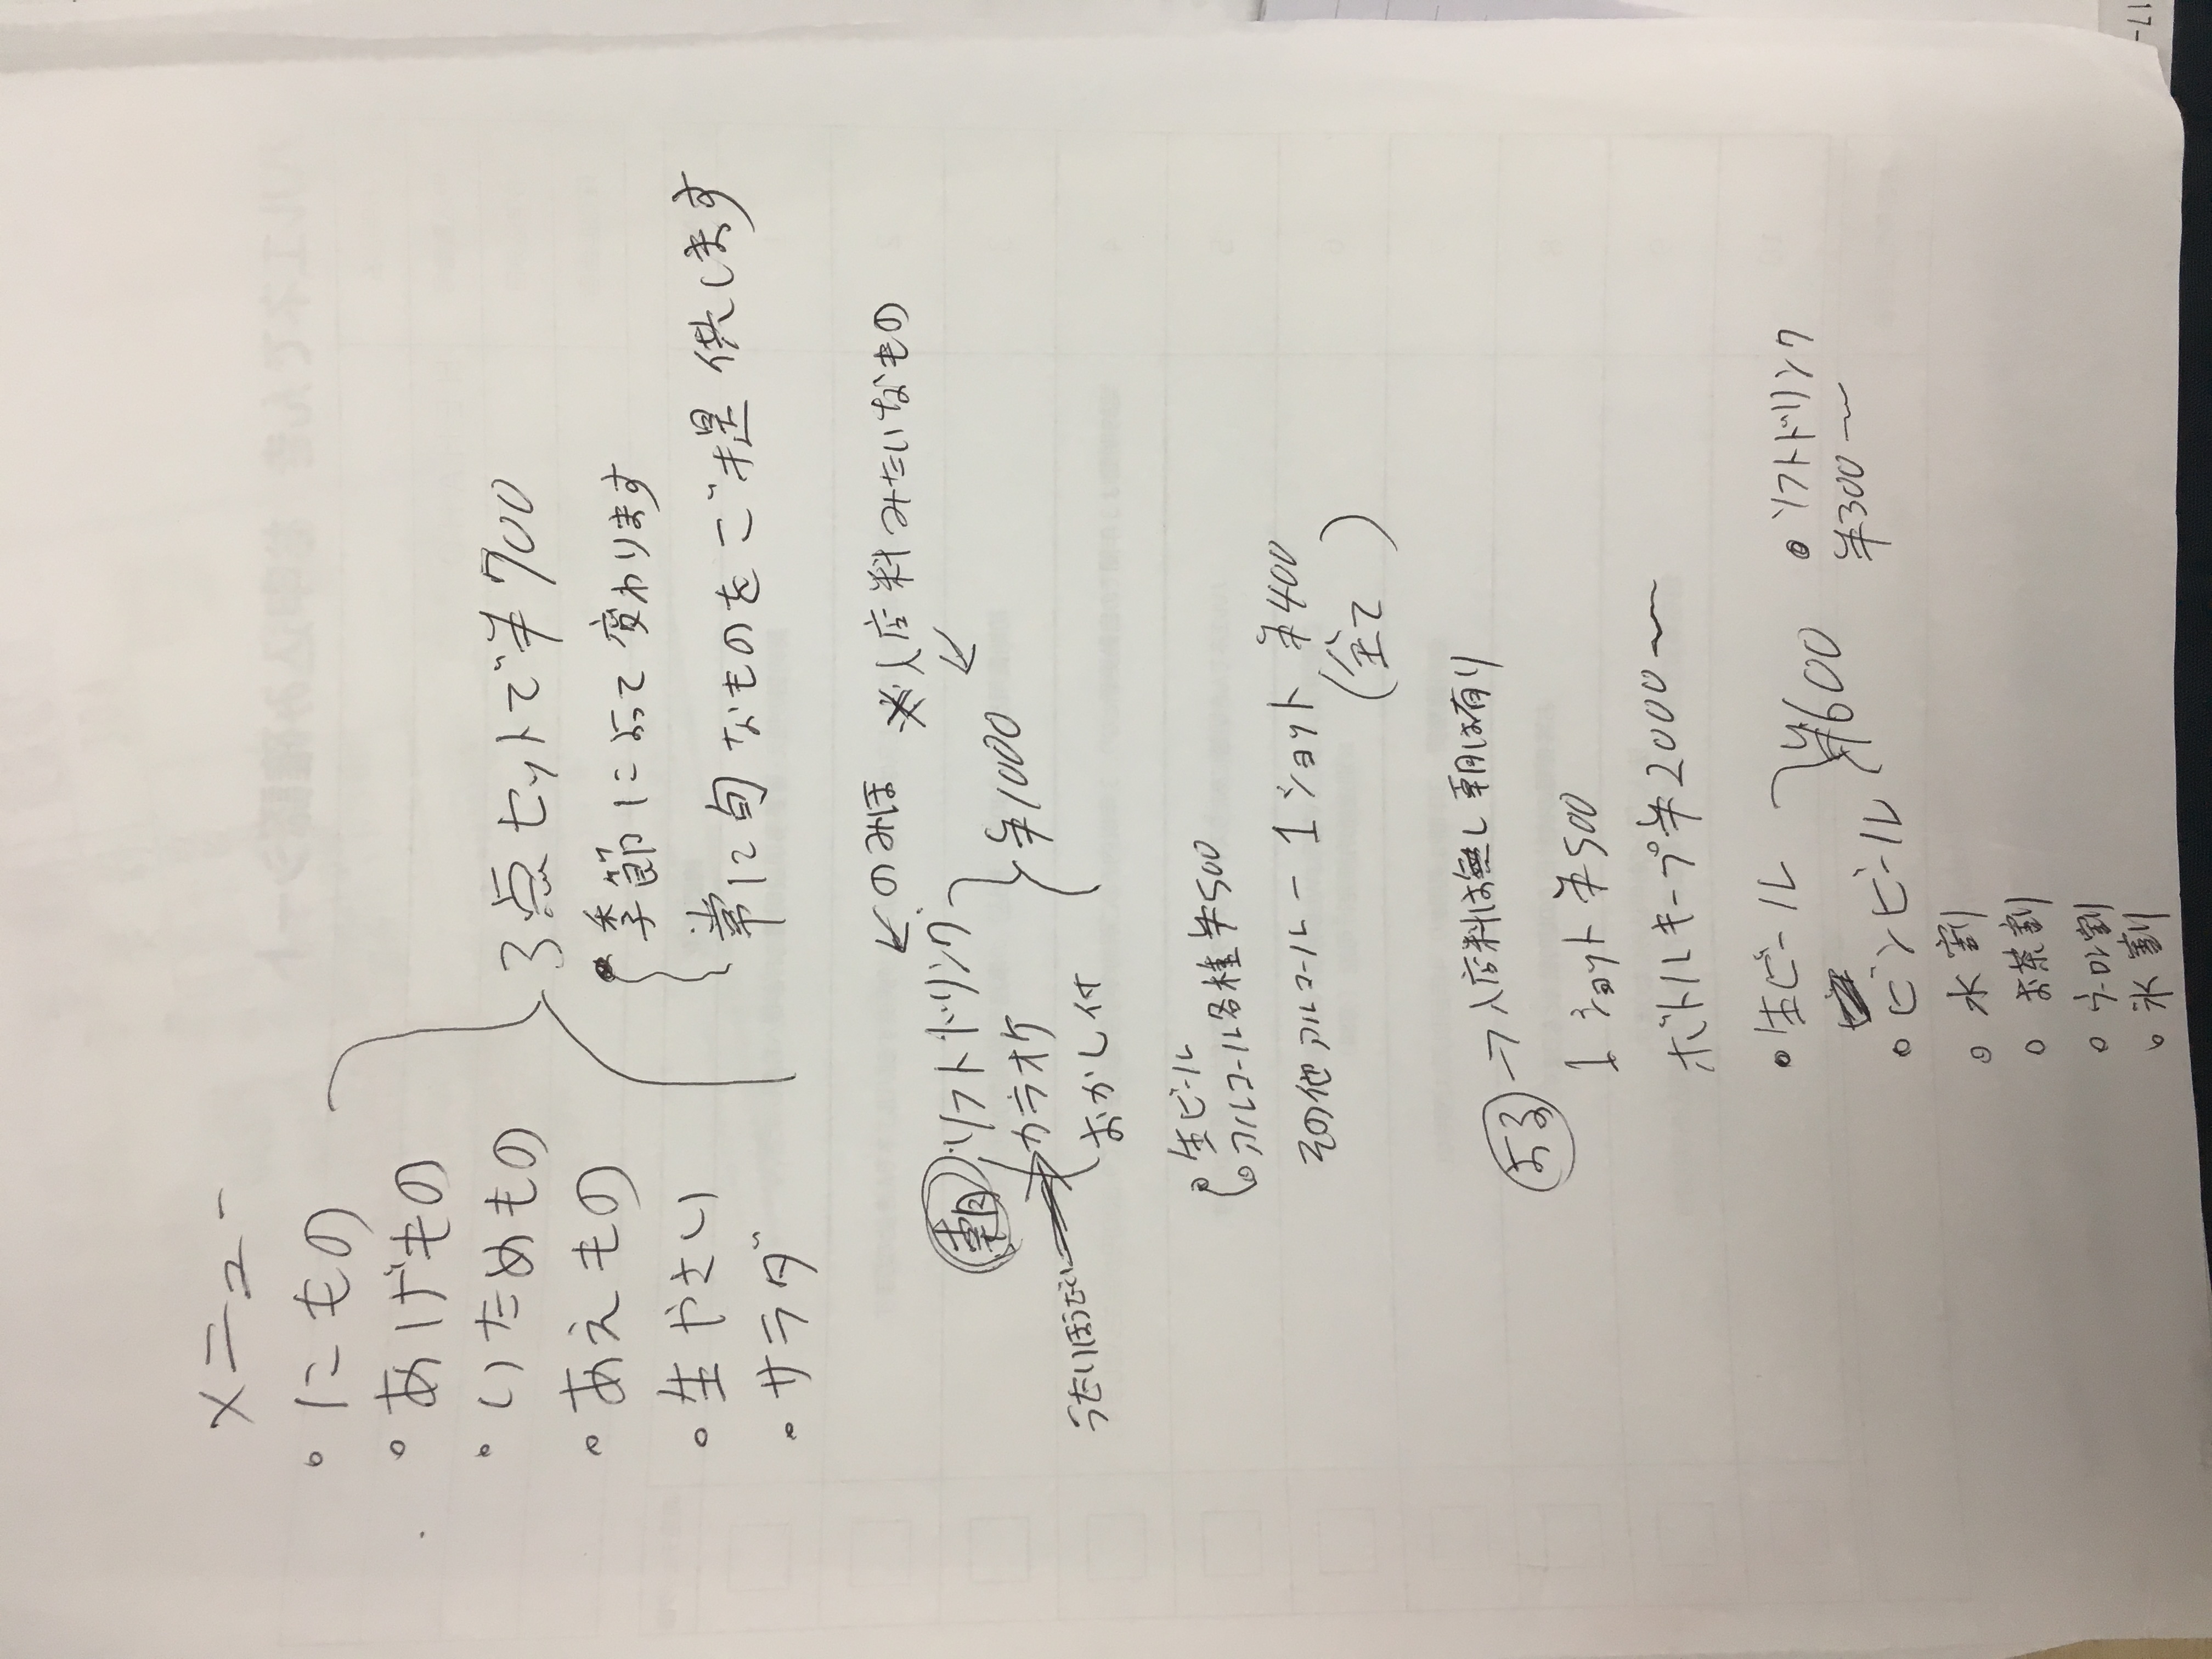 メニュー
・にもの
・あげもの
・いためもの
・あえもの
・生やさい
・サラダ
3点セットで¥700
・季節によって変わります
常に旬なものをご提供します
←のみほ
※入店料みたいなもの
朝
・ソフトドリンク
カラオケ
おかし付
¥1000
うたいほうだい
・生ビール
・アルコール各種¥500
その他アルコールー1ショット ¥400
(全て)
よる→入店料は無し 朝は有り
1ショット¥500
ボトルキープ¥2000〜
・生ビール
・ビンビール
¥600
・ソフトドリンク
¥300〜
・水割
・お茶割
・ウーロン割
・氷割